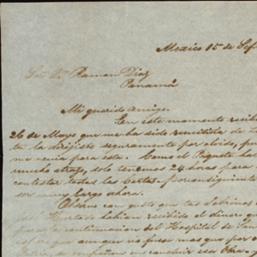 Mexico 1º de Se
Sor Dn Ramon Diaz
Panamá
Mi querido amigo.
En este momento recib
26 de Mayo que me ha sido remitida de
ta la dirijiste seguramente por olvido, pu
me venia para esta. Como el Paquete ha
mucho atraso, solo tenemos 24 horas para
contestar todas las Cartas. Por consiguiente
ser muy largo ahora.
Observo con gusto que tu
habian recibido el dinero qu
para la continuacion del Hospital de
que aunque no fuese mas que por
en concluir esa Obra